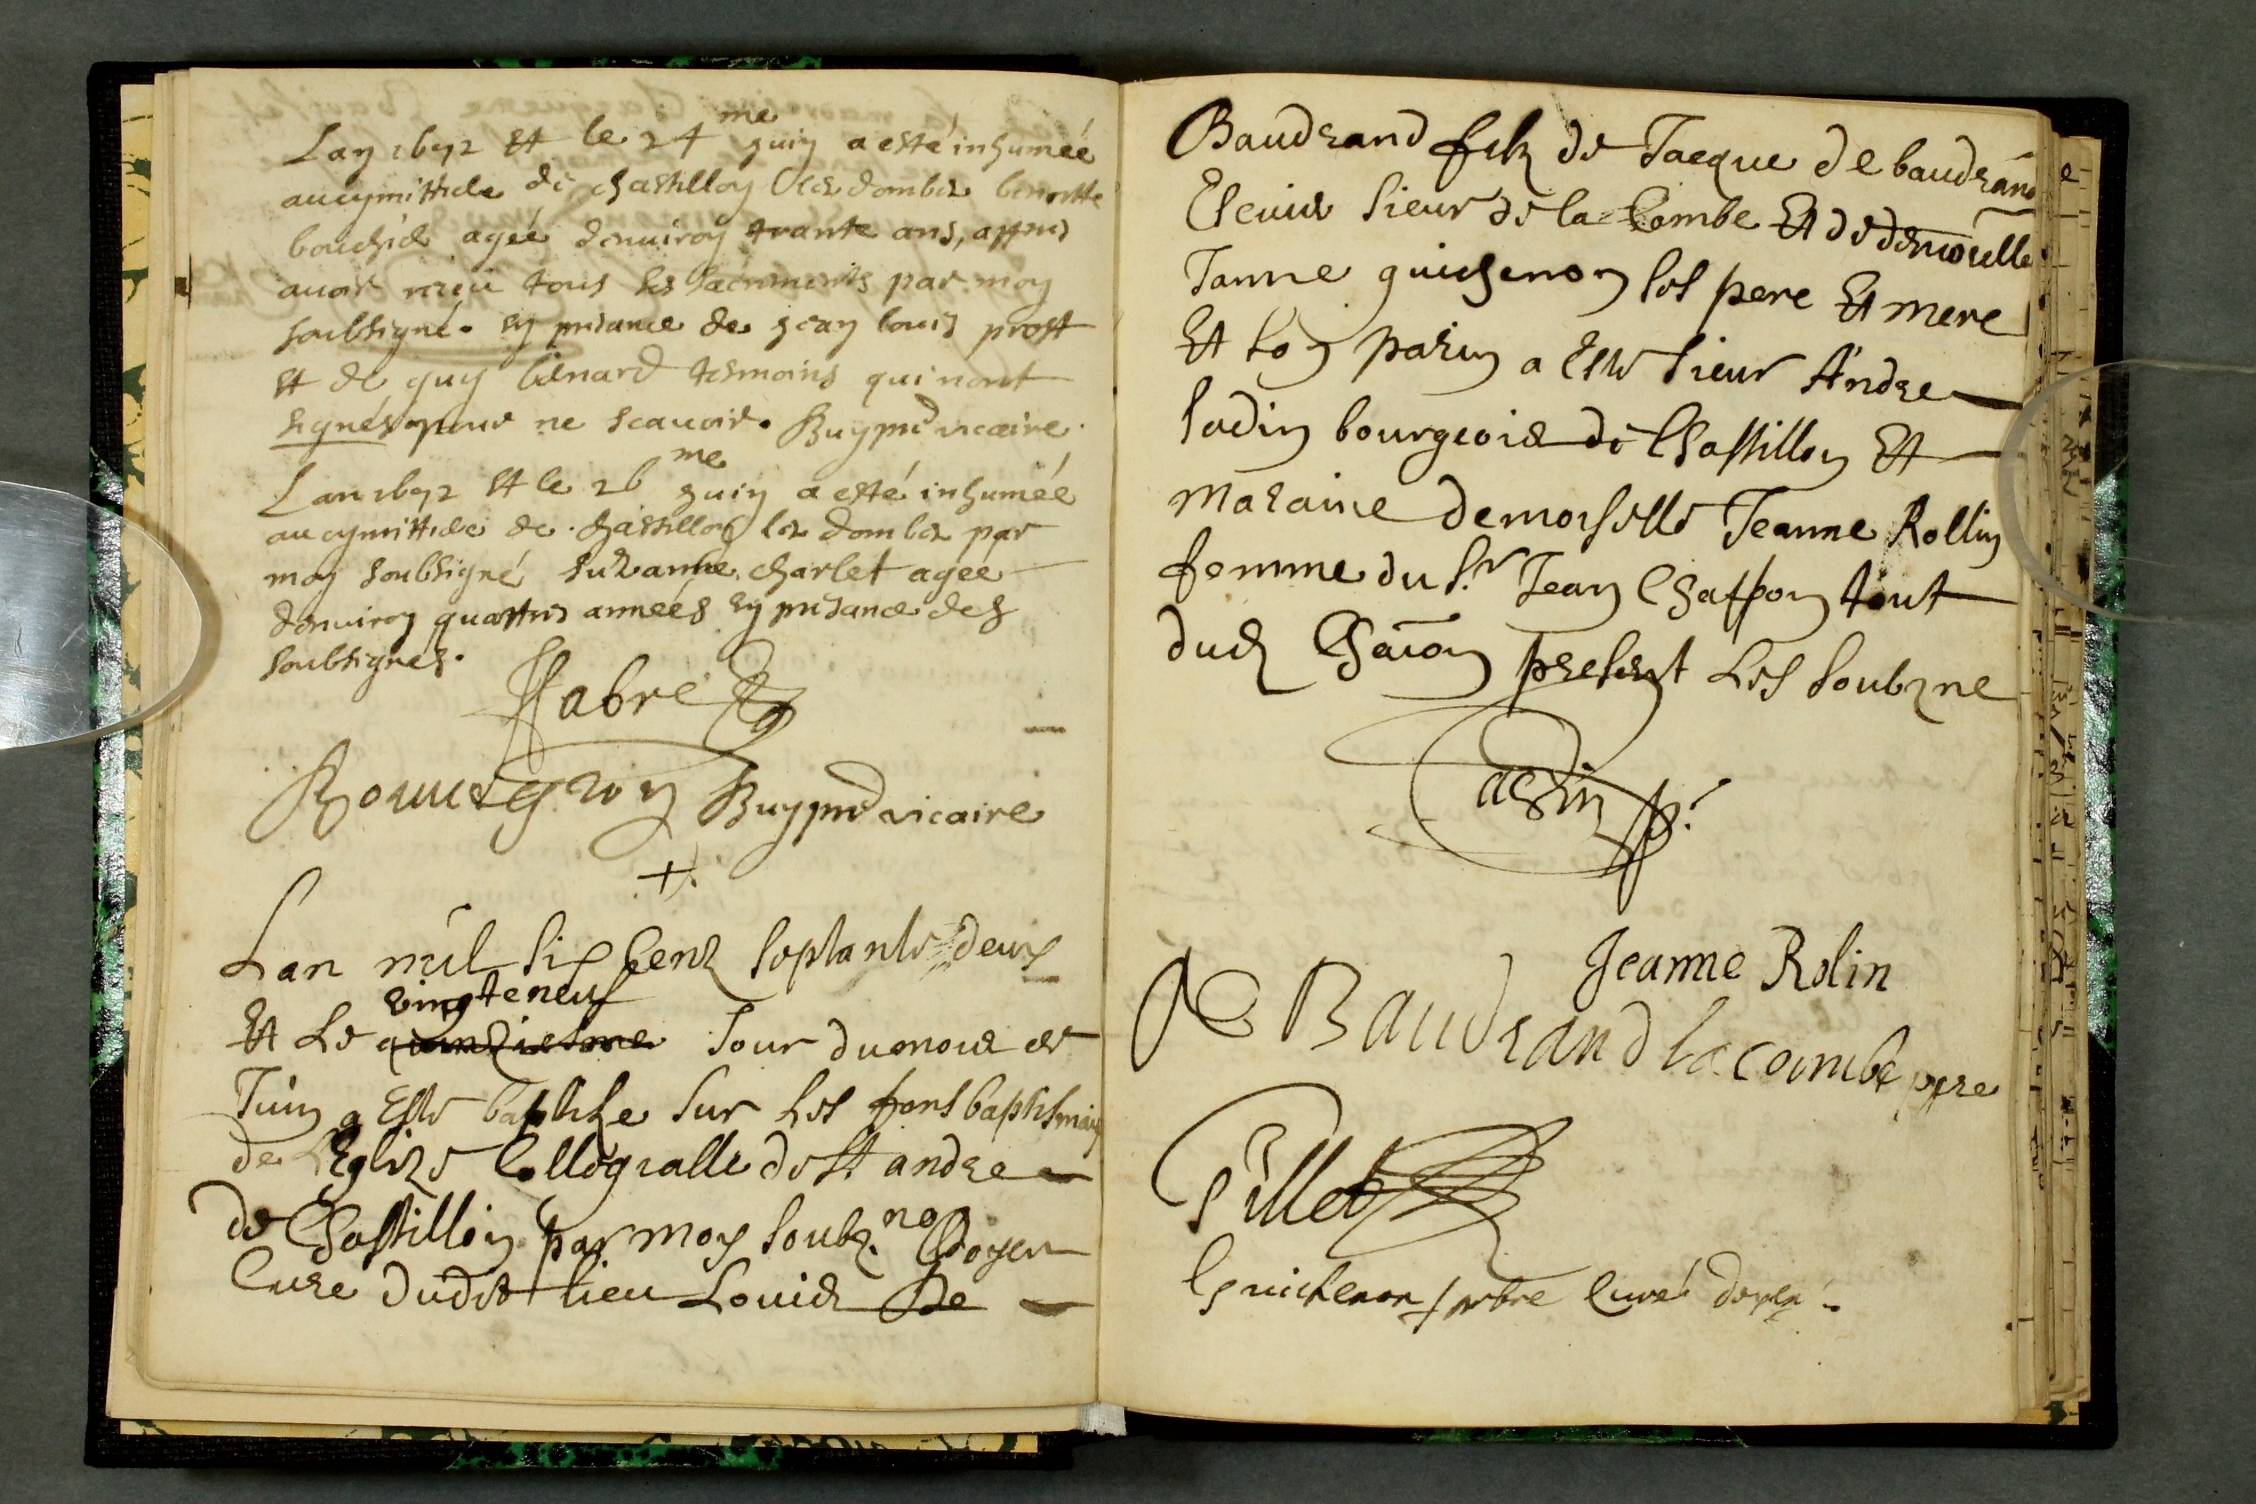 Lan 1672 et le 24me juin a esté inhumée
au cymittiere de chastillon les dombes benoitte
bouchié agée denviron trante ans, appres
avoir receu tous les sacrements par moy
soubsigné. en presance de jean louis prost
et de guy bienard tesmoins qui nont
signés pour ne scavoir. Buy pre vicaire.
Lan 1672 et le 26me juin a esté inhumée
au cymittiere de chastillon les dombes par
moy soubsigné suzanne charlet agée
denviron quattres années en presance des
soubsignes.
Fabre
Buy pre vicaire
+
Lan mil six cens septante deux
vingteneuf
Et le quinziesme Jour du mois de
Juin a esté baptize sur les fons baptismaux
de Leglize Collegialle de St andre
de Chastillon par moy soubz.ne Doyen
Cure dudit lieu Louis De
Baudrand filz de Jacque de baudrand
Escuier sieur de la Combe Et de demoiselle
Janne guichenon ses pere Et mere
Et son parin a esté sieur Andre
bourgeois de Chastillon Et
maraine demoiselle Jeanne Rollin
femme du Sr. Jean Chappon tout
dud Chaōn present les soubzne
Jeanne Rolin
De Baudrand lacombe pere
Pillet
Guichenon prbre Curé doyen.